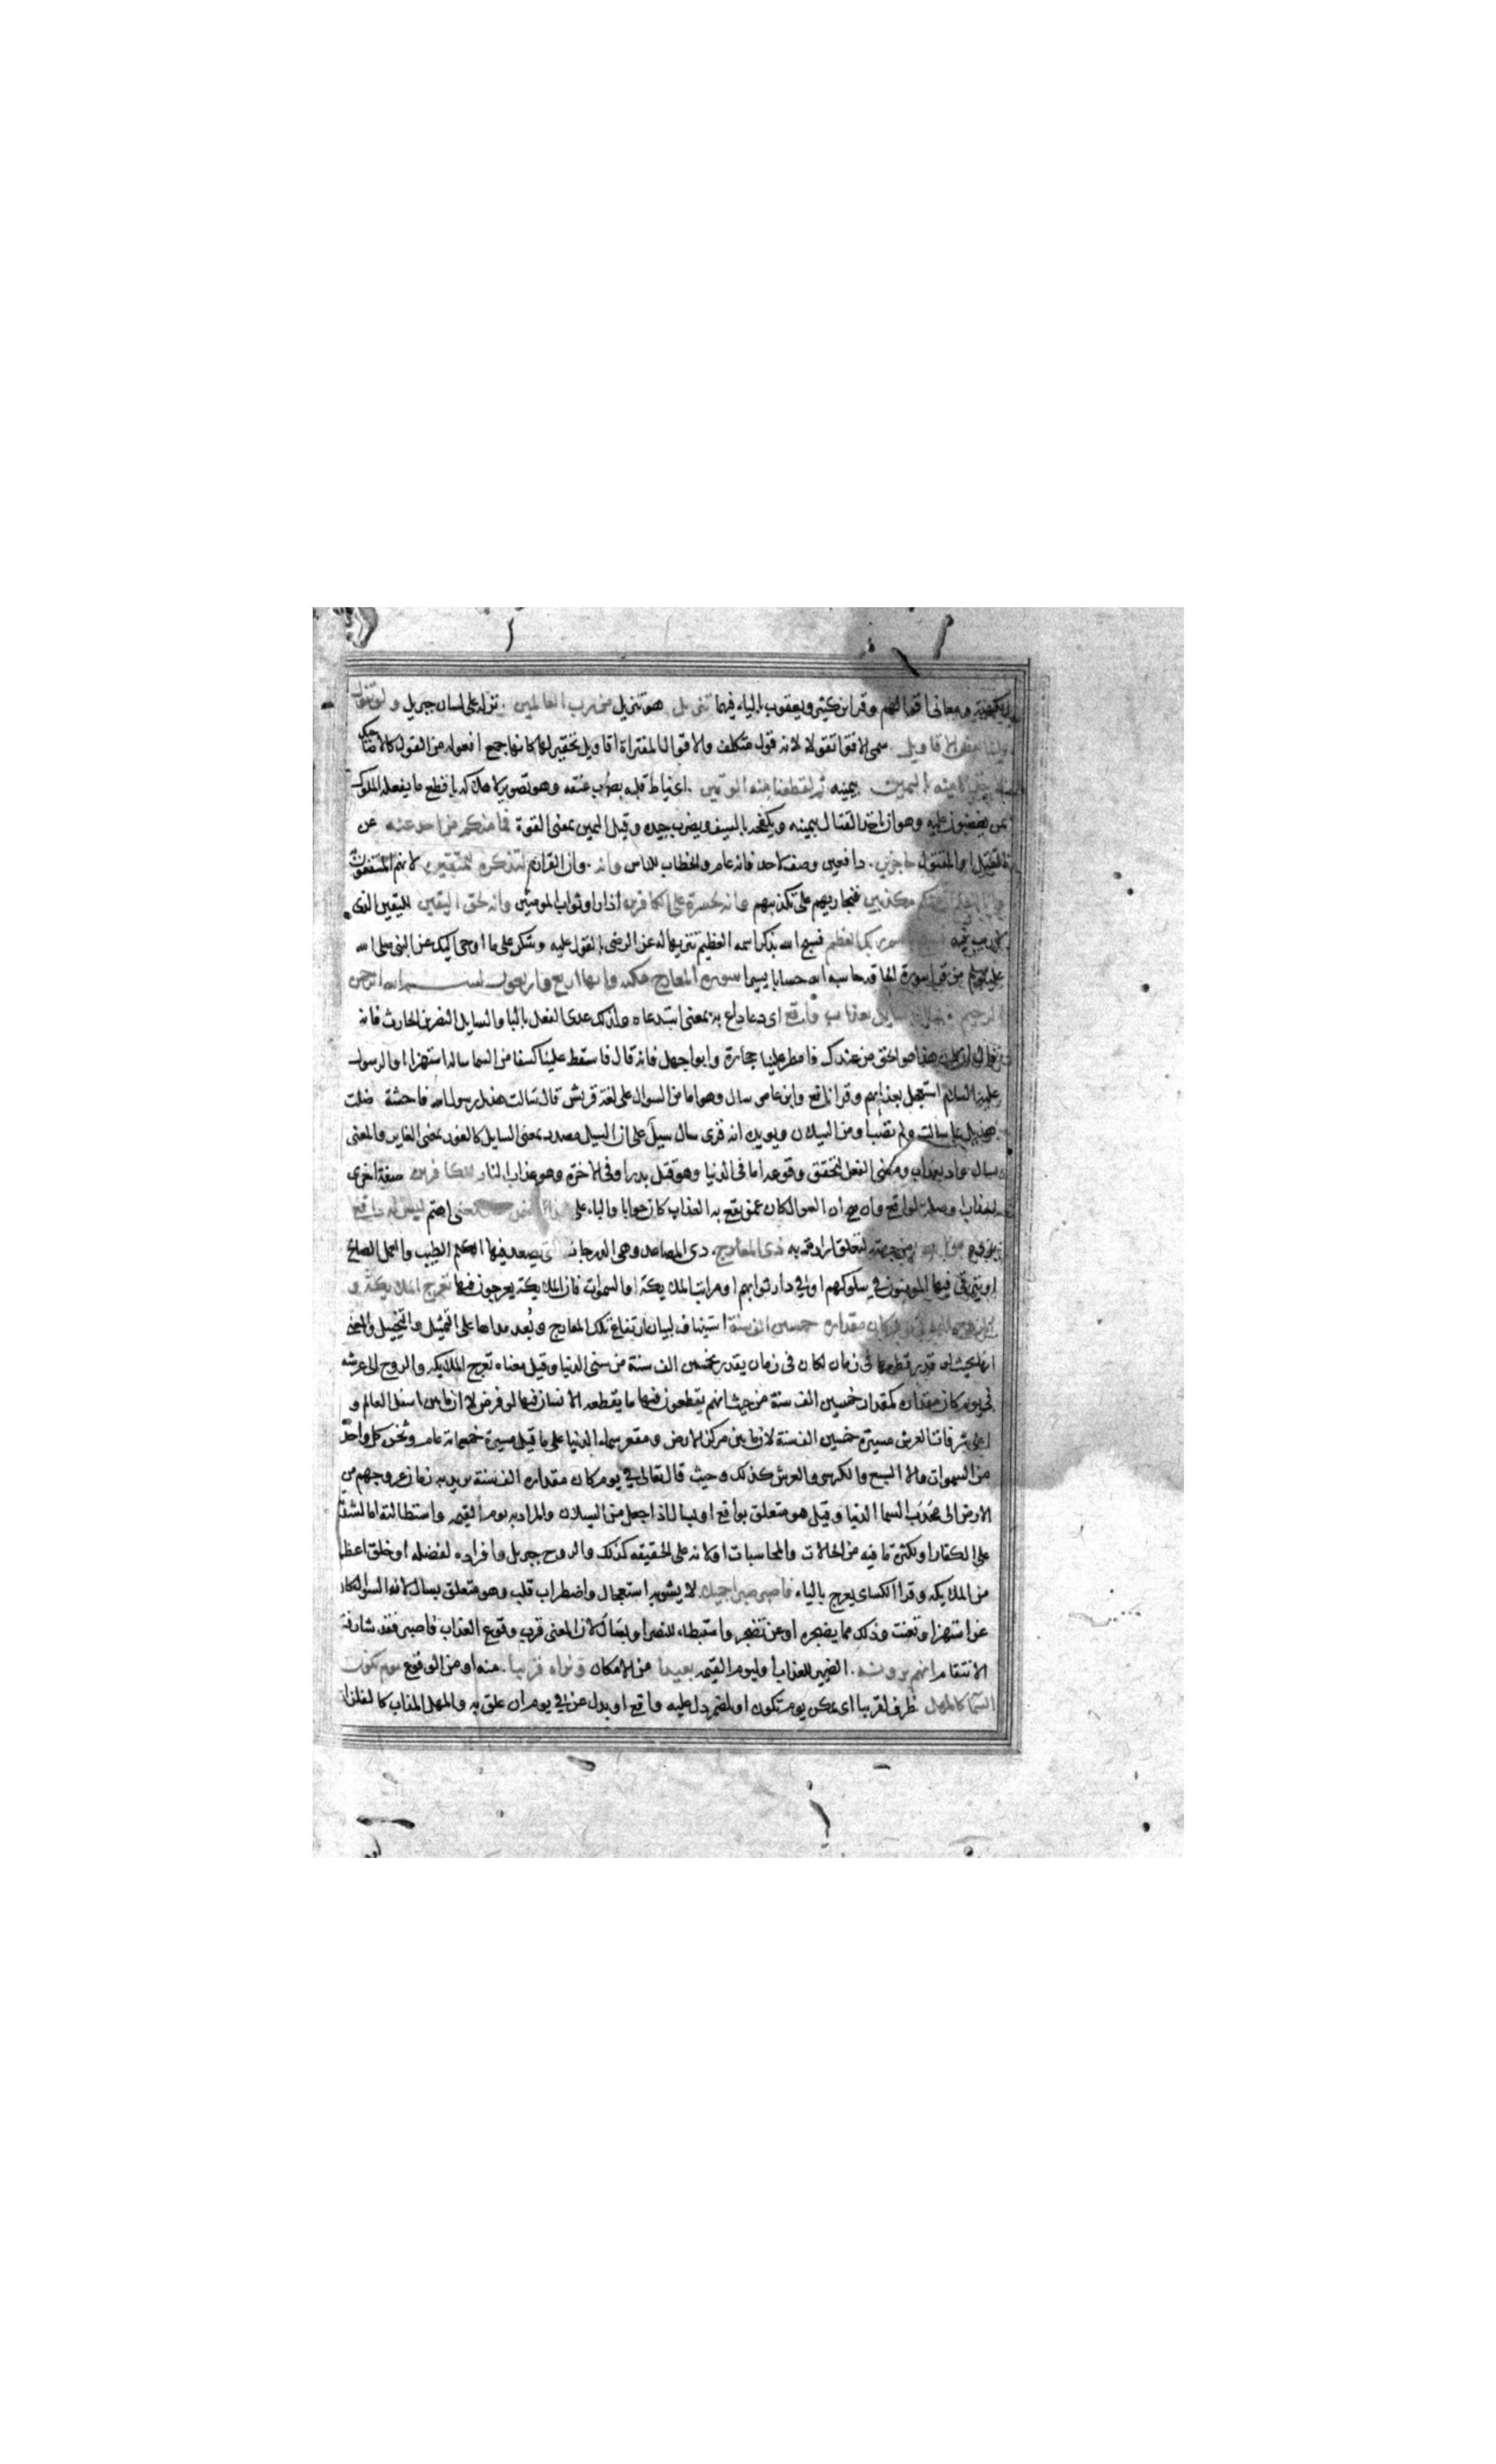 الكهنة ومعانى اقوالهم وقرا ابن كثير ويعقوب بالياء فيهما تنزيل هو تنزيل من رب العالمين نزله على لسان جبريل ولو تقول
علينا بعض الاقاويل سمى الافترا تقولا لانه قول متكلف والاقوال المفتراة اقاويل تحقيرا لها كانها جمع افعوله من القول كالاضاحيك
لاخذنا منه باليمين بيمينه ثم لقطعنا منه الوتين اى نياط قلبه بضرب عنقه وهو تصوير لاهلاكه بافظع ما يفعله الملوك
بمن يغضبون عليه وهو ان ياخذ القتال بيمينه ويكفحه بالسيف ويضرب جيده وقيل اليمين بمعنى القوة فما منكم من احد عنه عن
القتل او المقتول حاجزين دافعين وصف لاحد فانه عام والخطاب للناس وانه وان القران لتذكرة للمتقين لانهم المنتفعون
به وانا لنعلم ان منكم مكذبين فنجازيهم على تكذيبهم وانه لحسرة على الكافرين اذا راوا ثواب المومنين وانه لحق اليقين لليقين الذى
لا ريب فيه فسبح باسم ربك العظيم فسبح الله بذكر اسمه العظيم تنزيها له عن الرضى بالتقول عليه وشكرا على ما اوحى اليك عن النبى صلى الله
عليه وسلم من قرا سورة الحاقة حاسبه الله حسابا يسيرا سورة المعارج مكية وايها اربع واربعون بسم الله الرحمن
الرحيم سال سائل بعذاب واقع اى دعا داع به بمعنى استدعاه ولذلك عدى الفعل بالبا والسايل النضر بن الحارث فانه
قال ان كان هذا هو الحق من عندك فامطر علينا حجارة وابو جهل فانه قال فاسقط علينا كسفا من السما ساله استهزا او الرسول
عليه السلام استعجل بعذابهم وقرا نافع وابن عامر سال وهو اما من السوال على لغة قريش قال سالت هذيل رسول الله فاحشة ضلت
هذيل بما سالت ولم تصب او من السيلان ويويده انه قرى سال سيل على ان السيل مصدر بمعنى السايل كالغور بمعنى الغاير والمعنى
سال واد بعذاب ومضى الفعل لتحقق وقوعه اما فى الدنيا وهو قتل بدر او فى الاخرة وهو عذاب النار للكافرين صفة اخرى
لعذاب او صلة لواقع وان صح ان السوال كان عمن يقع به العذاب كان جوابا والباء على هذا لتضمن سال معنى اهتم ليس له دافع
يرده من الله من جهته لتعلق ارادته به ذى المعارج ذى المصاعد وهى الدرجات التى يصعد فيها الكلم الطيب والعمل الصالح
او يترقى فيها المومنون فى سلوكهم او فى دار ثوابهم او مراتب الملايكة او السموات فان الملايكة يعرجون فيها تعرج الملايكة و
الروح اليه فى يوم كان مقداره خمسين الف سنة استيناف لبيان ارتفاع تلك المعارج وبعد مداها على التمثيل والتخييل والمعنى
انها بحيث لو قدر قطعها فى زمان لكان فى زمان يقدر بخمسين الف سنة من سنى الدنيا وقيل معناه تعرج الملايكة والروح الى عرشه
فى يوم كان مقداره كمقدار خمسين الف سنة من حيث انهم يقطعون فيها ما يقطعه الانسان فيها لو فرض لا ان ما بين اسفل العالم و
اعلى شرفات العرش مسيرة خمسين الف سنة لان ما بين مركز الارض ومقعر سماء الدنيا على ما قيل مسيرة خمسمائة عام وثخن كل واحد
من السموات السبع والكرسى والعرش كذلك وحيث قال تعالى فى يوم كان مقداره الف سنة يريد به زمان عروجهم من
الارض الى محدب السما الدنيا وقيل هو متعلق بواقع او بسال اذا جعل من السيلان والمراد به يوم القيمة واستطالته اما لشدته
على الكفار او لكثرة ما فيه من الحالات والمحاسبات او لانه على الحقيقه كذلك والروح جبريل وافراده لفضله او خلق اعظم
من الملايكه وقرا الكساى يعرج بالياء فاصبر صبرا جميلا لا يشوبه استعجال واضطراب قلب وهو متعلق بسال لانه السوال كان
عن استهزا وتعنت وذلك مما يضجره او عن تضجر واستبطاء للنصر او بسال لان المعنى قرب وقوع العذاب فاصبر فقد شارفت
الانتقام انهم يرونه الضمير للعذاب او ليوم القيمه بعيدا من الامكان ونراه قريبا منه او من الوقوع يوم تكون
السما كالمهل ظرف لقريبا اى يمكن يوم تكون او لمضمر دل عليه واقع او بدل عن فى يوم ان علق به والمهل المذاب كالفلزات